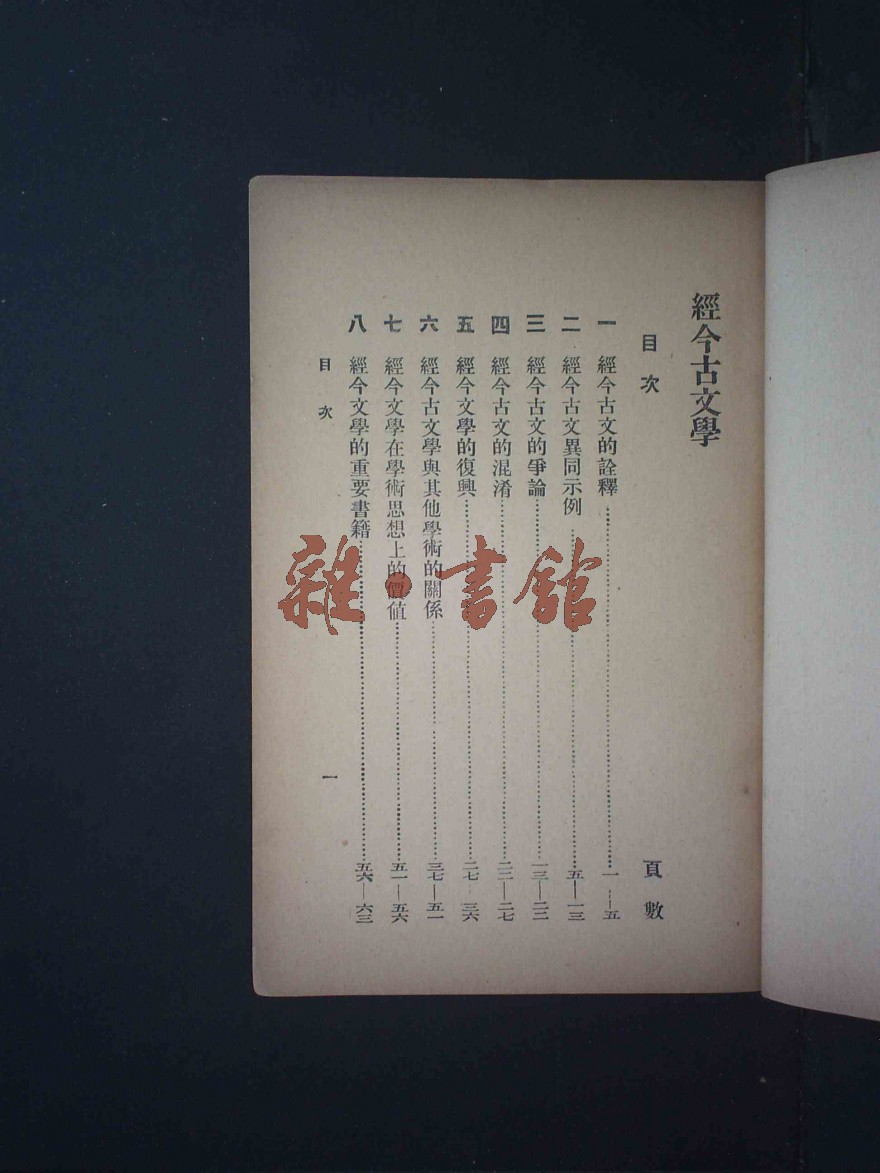 經今古文學
目次 頁數
一 經今古文的詮釋……一——五
二 經今古文異同示例……五——一三
三 經今古文的爭論……一三——二二
四 經今古文的混淆……二二——二七
五 經今文學的復興……二七——三六
六 經今古文學與其他學術的關係……三七——五一
七 經今文學在學術思想上的價值……五一——五六
八 經今文學的重要書籍……五六——六三
目次 一
雜·書館